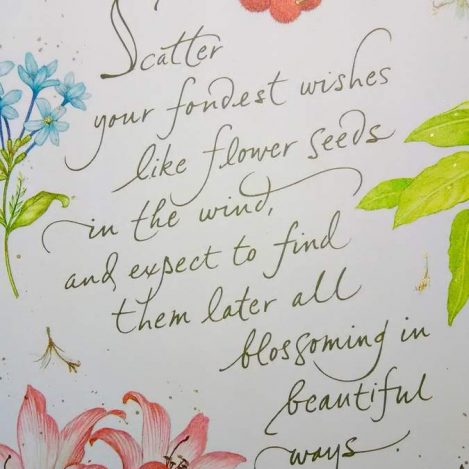 Scatter
your fondest wishes
like flower seeds
in the wind,
and expect to find
them later all
blossoming in
beautiful
ways.